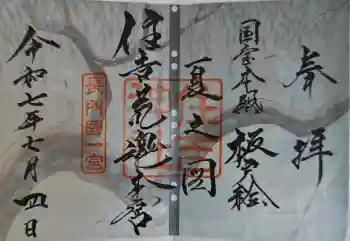 奉拝
国宝本殿 板戸絵
夏之図
住吉荒魂本宮
長門國一宮
令和七年七月四日